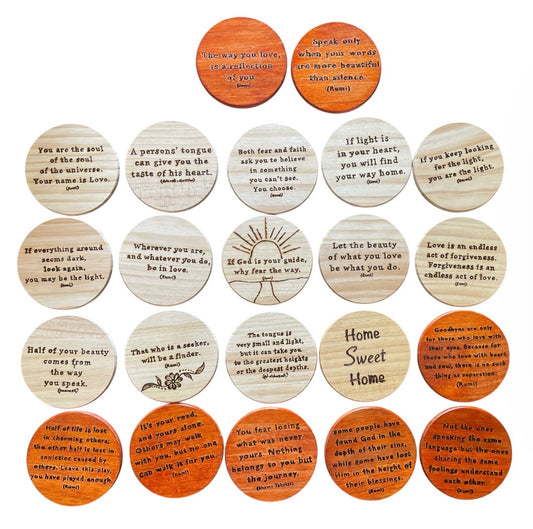 The way you love,
is a reflection
of you
(Rumi)
Speak only
when your words
are more beautiful
than silence.
(Rumi)
You are the soul
of the soul
of the universe.
Your name is Love.
(Rumi)
A persons' tongue
can give you the
taste of his heart.
Both fear and faith
ask you to believe
in something
you can't see.
You choose.
(Rumi)
If light is
in your heart,
you will find
your way home.
(Rumi)
If you keep looking
for the light,
you are the light.
(Rumi)
If everything around
seems dark,
look again,
you may be the light.
(Rumi)
Wherever you are,
and whatever you do,
be in love.
(Rumi)
If God is your guide,
why fear the way.
(Rumi)
Let the beauty
of what you love
be what you do.
(Rumi)
Love is an endless
act of forgiveness.
Forgiveness is an
endless act of love.
(Rumi)
Half of your beauty
comes from
the way
you speak.
That who is a seeker,
will be a finder.
(Rumi)
The tongue is
very small and light,
but it can take you
to the greatest heights
or the deepest depths.
Home
Sweet
Home
Goodbyes are only
for those who love with
their eyes. Because for
those who love with heart
and soul, there is no such
thing as separation.
(Rumi)
Half of life is lost
in charming others,
the other half is lost in
anxieties caused by
others. Leave this play,
you have played enough.
(Rumi)
It's your road,
and yours alone.
Others may walk
with you, but no one
can walk it for you.
(Rumi)
You fear losing
what was never
yours. Nothing
belongs to you but
the journey.
(Shams Tabrizi)
Some people have
found God in the
depth of their sins,
while some have lost
Him in the height of
their blessings.
(Rumi)
Not the ones
speaking the same
language but the ones
sharing the same
feelings understand
each other.
(Rumi)